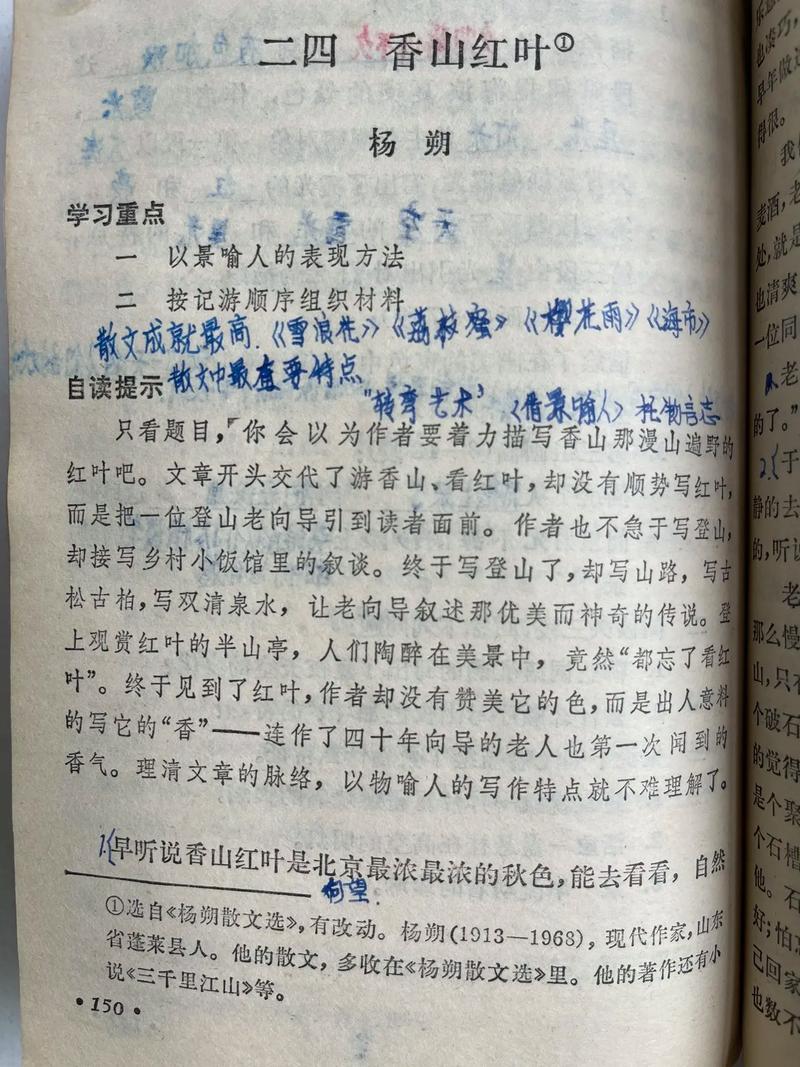 二四 香山红叶①
杨 朔
学习重点
一 以景喻人的表现方法
二 按记游顺序组织材料
散文成就最高.《雪浪花》《荔枝蜜》《樱花雨》《海市》
自读提示 散文中最重要特点
"转弯艺术" 《借景喻人》 托物言志
只看题目,「你会以为作者要着力描写香山那漫山遍野的
红叶吧。文章开头交代了游香山、看红叶,却没有顺势写红叶,
而是把一位登山老向导引到读者面前。作者也不急于写登山,
却接写乡村小饭馆里的叙谈。终于写登山了,却写山路,写古
松古柏,写双清泉水,让老向导叙述那优美而神奇的传说。登
上观赏红叶的半山亭,人们陶醉在美景中,竟然“都忘了看红
叶”。终于见到了红叶,作者却没有赞美它的色,而是出人意料
的写它的“香”——连作了四十年向导的老人也第一次闻到的
香气。理清文章的脉络,以物喻人的写作特点就不难理解了。
1.早听说香山红叶是北京最浓最浓的秋色,能去看看,自然
向望.
①选自《杨朔散文选》,有改动。杨朔(1913—1968),现代作家,山东
省蓬莱县人。他的散文,多收在《杨朔散文选》里。他的著作还有小
说《三千里江山》等。
•150•
也凑巧,
早年做过
得很。
我
麦酒,老
处,就是
也清爽
一位同
老
的了。”
2.于
静的去
的,听说
老
那么慢
山,只有
个破石
的觉得
是个聚
个石槽
他。石
好;怕
己回家
也数不